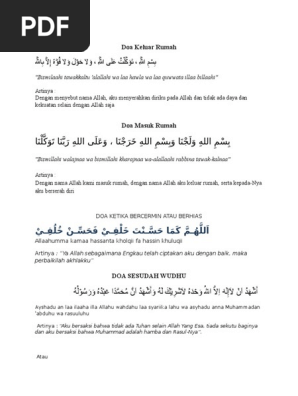 PDF
Doa Keluar Rumah
بِسْمِ اللهِ ، تَوَكَّلْتُ عَلَى اللهِ ، وَلَا حَوْلَ وَلَا قُوَّةَ إِلَّا بِاللهِ
"Bismilaahi tawakkaltu 'alallahi wa laa hawla wa laa quwwata illaa billaahi"
Artinya
Dengan menyebut nama Allah, aku menyerahkan diriku pada Allah dan tidak ada daya dan
kekuatan selain dengan Allah saja
Doa Masuk Rumah
بِسْمِ اللهِ وَلَجْنَا وَبِسْمِ اللهِ خَرَجْنَا ، وَعَلَى اللهِ رَبِّنَا تَوَكَّلْنَا
"Bismillahi walajnaa wa bismillahi kharajnaa wa-alallaahi rabbinaa tawak-kalnaa"
Artinya
Dengan nama Allah kami masuk rumah, dengan nama Allah aku keluar rumah, serta kepada-Nya
aku berserah diri
DOA KETIKA BERCERMIN ATAU BERHIAS
اَللّٰهُمَّ كَمَا حَسَّنْتَ خَلْقِيْ فَحَسِّنْ خُلُقِيْ
Allaahumma kamaa hassanta kholqi fa hassin khuluqi
Artinya : "Ya Allah sebagaimana Engkau telah ciptakan aku dengan baik, maka
perbaikilah akhlakku"
DOA SESUDAH WUDHU
أَشْهَدُ أَنْ لَاإِلٰهَ إِلَّا اللهُ وَحْدَهُ لَاشَرِيْكَ لَهُ وَأَشْهَدُ أَنَّ مُحَمَّدًا عَبْدُهُ وَرَسُوْلُهُ
Asyhadu an laa ilaaha illa Allahu wahdahu laa syariika lahu wa asyhadu anna Muhammadan
'abduhu wa rasuuluhu
Artinya : "Aku bersaksi bahwa tidak ada Tuhan selain Allah Yang Esa, tiada sekutu baginya
dan aku bersaksi bahwa Muhammad adalah hamba dan Rasul-Nya".
Atau